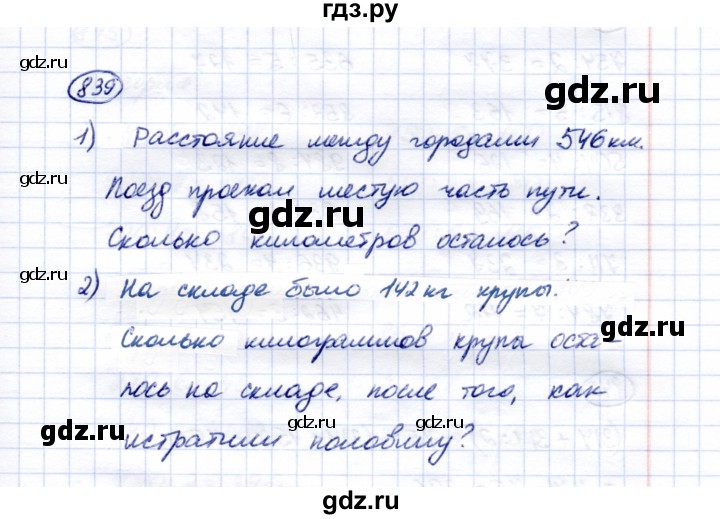 гдз.ру
gdz.ru
839
gdz.ru
gdz.ru
1) Расстояние между городами 546 км.
gdz.ru
gdz.ru
Поезд проехал шестую часть пути.
gdz.ru
Сколько километров осталось?
2) На складе было 142 кг крупы.
gdz.ru
gdz.ru
Сколько килограммов крупы оста-
лось на складе, после того, как
gdz.ru
gdz.ru
gdz.ru
истратили половину?
gdz.ru